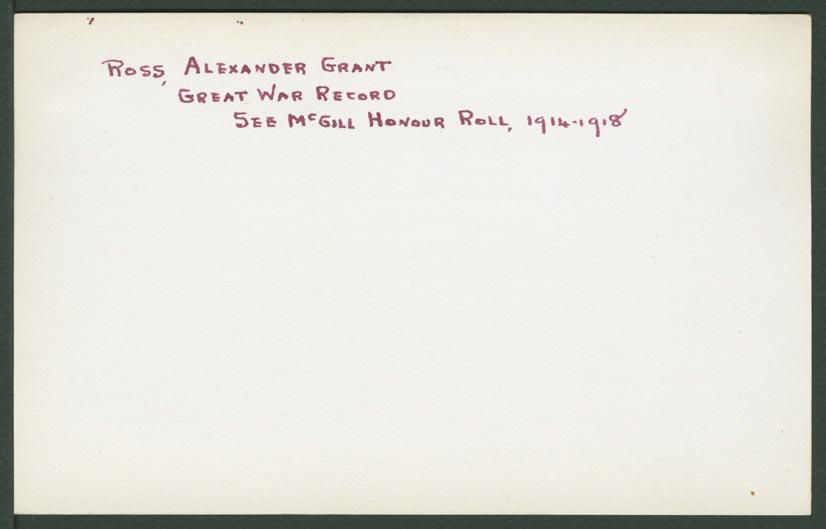 Ross, Alexander Grant
Great War Record
See McGill Honour Roll, 1914-1918